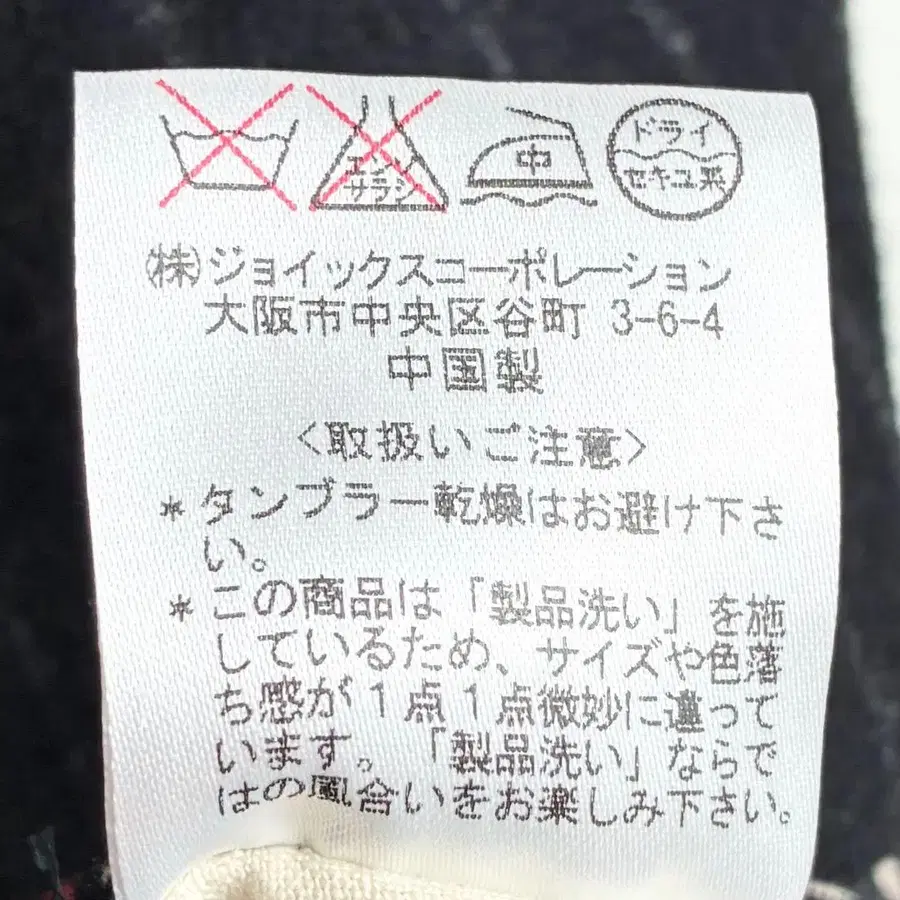 エンソ
サラシ
中
ドライ
セキユ系
㈱ジョイックスコーポレーション
大阪市中央区谷町 3-6-4
中国製
〈取扱いご注意〉
*タンブラー乾燥はお避け下さ
い。
*この商品は「製品洗い」を施
しているため、サイズや色落
ち感が1点1点微妙に違って
います。「製品洗い」ならで
はの風合いをお楽しみ下さい。